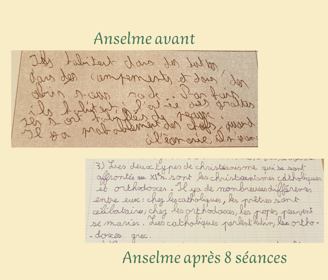 Anselme avant
Ils habitent dans des huttes
dans des campements et dans des
abris sous roche. Parfois
ils habitent à l'entrée des grottes
Ils sont habillés de peaux.
Il y a probablement des chefs
3) Les deux types de christianisme qui se sont
affrontés au XIe s. sont les christianismes catholiques
et orthodoxes. Il y a de nombreuses différences
entre eux : chez les catholiques, les prêtres sont
célibataires, chez les orthodoxes, les popes peuvent
se marier. Les catholiques parlent latin, les ortho-
-doxes grec.
Anselme après 8 séances